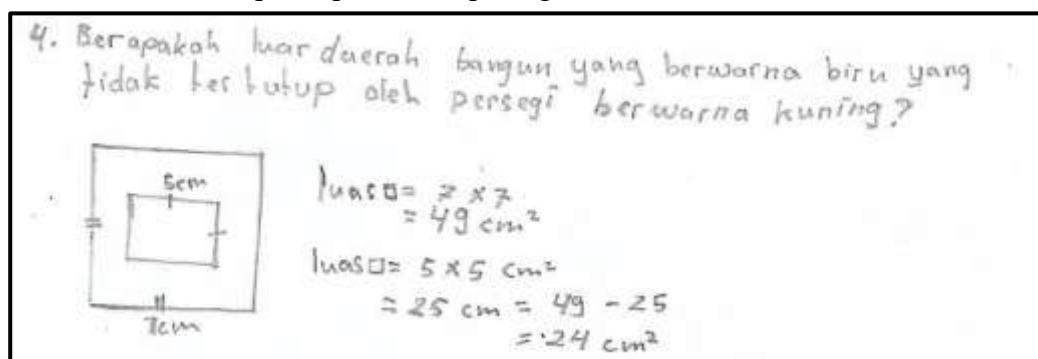 4. Berapakah luar daerah bangun yang berwarna biru yang
tidak tertutup oleh persegi berwarna kuning?
5cm
7cm
luas □ = 7 x 7
= 49 cm²
luas □ = 5 x 5 cm²
= 25 cm = 49 - 25
= 24 cm²